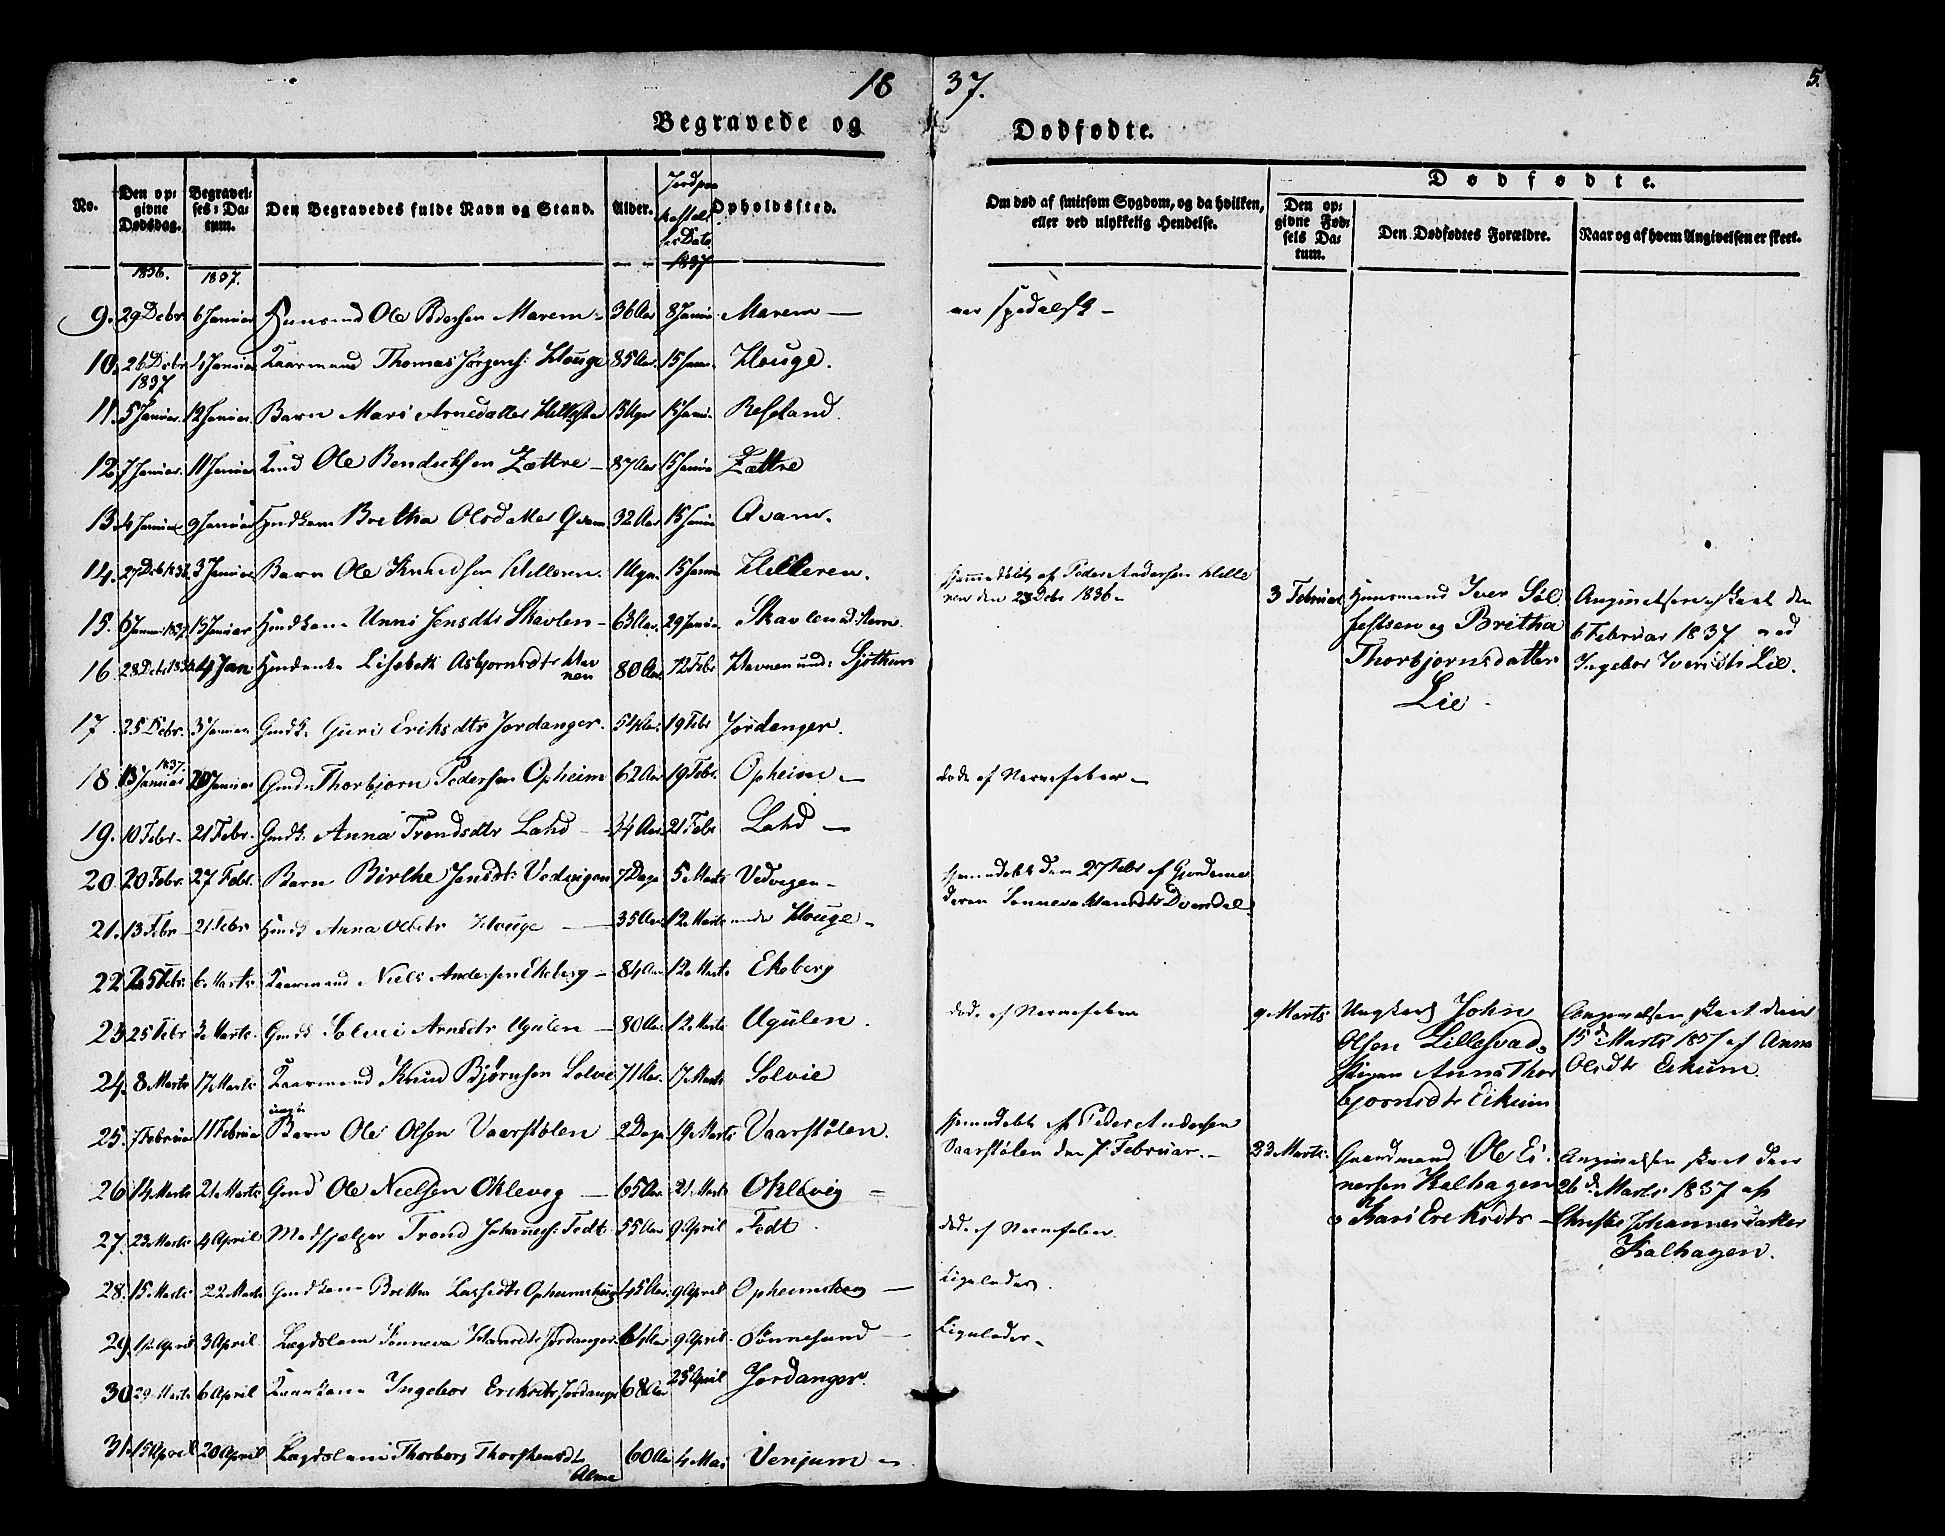 18 37. 5.
Begravede og Dødfødte.
No. Den opgivne Dødsdag. Begravelses-Datum. Den Begravedes fulde Navn og Stand. Alder. Jordpaakastelses Dato 1837 Opholdssted. Om død af smitsom Sygdom, og da hvilken, eller ved ulykkelig Hendelse. Dødfødte.
Den opgivne Fødsels Datum. Den Dødfødtes Forældre. Naar og af hvem Angivelsen er skeet.
1836. 1837.
9. 29 Debr 6 Januar Huusmd Ole Pedersen Marem 36 Aar 8 Janua Marem — var spedalsk –
10. 26 Debr Januar Kaarmand Thomas Jørgens: Houge 85 Aar 15 Janu. Houge.
1837
11. 5 Januar. 12 Januar. Barn Mari Arnedatter 15 Janu. Refsland.
12. 7 Januar. 11 Januar Ole Bendicksen Zættre – 87 Aar 15 Janua Zættre
13. 4 Januar 9 Januar Hmdkone Britha Olsdatter Qvam. 32 Aar 15 Janua Qvam.
14. 27 Debr 1836 3 Januar Barn Ole Knudsen Helleren. 1 Uge. 15 Janua Helleren. hjemmedøbt af Peder Andersen Helleren den 23 Debr 1836 –
15. 6 Januar 1837 13 Januar Hmdkone Unni Jensdtr Skavlen – 63 Aar. 29 Janua Skavlen
16 28 Debr 1836 4 Jan Lisabeth Asbjørnsdtr Havnen 80 Aar 12 Febr Havnen und: Sjøthun
3 Februar Huusmand Iver Sølfestsen og Britha Thorbjørnsdatter Lie. Angivelsen skeet den 6 Februar 1837 ved Ingebor Iversdtr Lie.
17. 25 Debr. 3 Januar Gmdk. Guri Eriksdtr Jordanger. 54 Aar. 19 Febr Jordanger.
18. 13 Januar 1837. 20 Januar Gmd Thorbjørn Pedersen Opheim 62 Aar 19 Febr. Opheim – døde af Nervefeber –
19. 10 Febr. 21 Febr. Gmdk. Anna Trondsdtr Lahd – 34 Aar 21 Febr Lahd –
20. 20 Febr. 27 Febr. Barn Birthe Jensdtr Vedvigen 7 Dage 5 Marts Vedvegen – hjemmedøbt den 27 Febr af Gjordemoderen Sønneva Hansdtr Dversdal.
21. 13 Febr – 21 Febr Hmdk Anna Olsdtr Houge — 35 Aar 12 Marts under Houge –
22. 25 Febr. 6 Marts Kaarmand Niels Andersen Ekeberg – 84 Aar 12 Marts Ekeberg
23. 25 Febr 3 Marts Gmdk Solvei Arnsdtr Ugulen – 80 Aar. 12 Marts Ugulen. døde af Nervefeber
24. 8 Marts 17 Marts Kaarmand Knud Bjørnsen Solvie 71 Aar. 17 Marts Solvie
9 Marts Ungkarl John Olsen Lillesvad, Pigen Anna Thorbjørnsdtr Eikum Angivelsen skeet den 15de Marts 1837 af Anna Olsdtr Eikum.
25. Februar 11 Februar Barn Ole Olsen Vaarstølen – 2 Dage 19 Marts Vaarstølen. hjemmedøbt af Peder Andersen Vaarstølen den 7 Februar. –
26 14 Marts 21 Marts Gmd Ole Nielsen Oklevig — 65 Aar 21 Marts Oklevig –
23 Marts. Gaardmand Ole Einersen Kalhagen og Kari Eriksdtr – Angivelsen skeet den 26de Marts 1837 af Christie Johannesdatter Kalhagen.
27. 23 Marts 4 April Medhjælper Trond Johannes: Fedt 55 Aar 9 April Fedt. død af Nervefeber.
28. 15 Marts 22 Marts Gmdkone Britha Lassedtr Opheimshoug 45 Aar. 9 April Opheimshoug — Ligeledes.
29. April 3 April Lægdslem Sønneva Hansdtr Jordanger. 64 Aar 9 April. Sønnesand — Ligeledes –
30 29 Marts 6 April Ingebor Eriksdtr Jordange 68 Aar 25 April Jordanger.
31. 15 April 20 April Lægdslem Thorborg Thorstensdtr Alme 60 Aar 4 Mai Venjum –